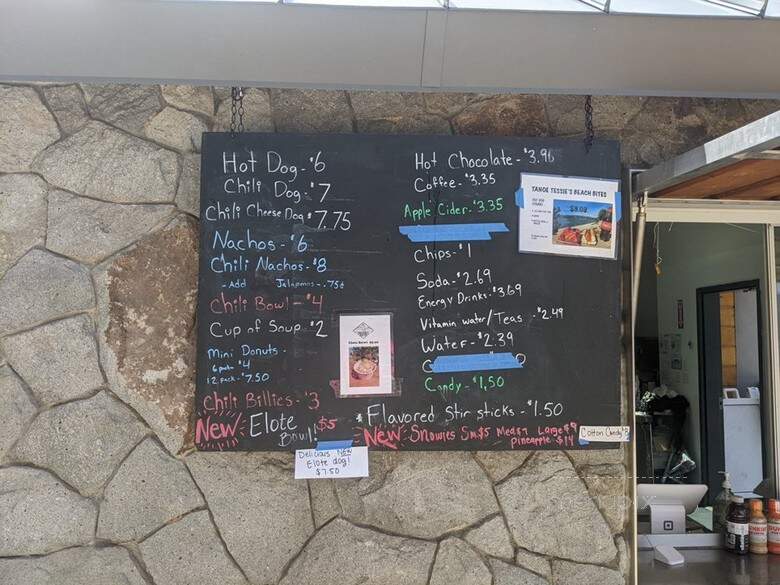 Hot Dog - $6
Chili Dog - $7
Chili Cheese Dog $7.75
Nachos - $6
Chili Nachos - $8
- Add Jalapenos - .75¢
Chili Bowl - $4
Cup of Soup $2
Mini Donuts -
6 pack $4
12 pack - $7.50
Chili Billies - $3
New Elote Bowl! $5
Delicious NEW
Elote dog!
$7.50
Hot Chocolate - $3.96
Coffee - $3.35
Apple Cider - $3.35
Chips - $1
Soda - $2.69
Energy Drinks - $3.69
Vitamin water/Teas - $2.49
Water - $2.39
Candy - $1.50
* Flavored Stir sticks - $1.50
New Snowies Sm.$5 Med$7 Large$9
Pineapple - $14
Cotton Candy $
TAHOE TESSIE'S BEACH BITES
$9.09